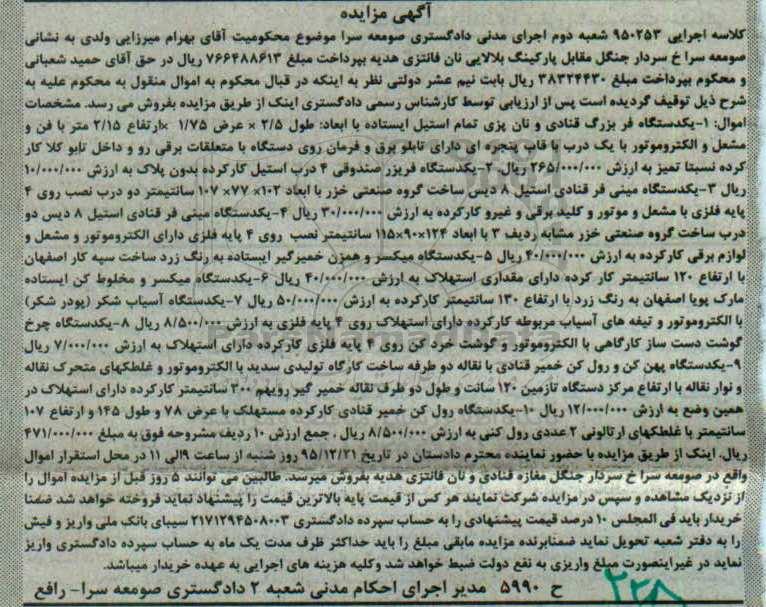 آگهی مزایده
کلاسه اجرایی ۹۵۰۲۵۳ شعبه دوم اجرای مدنی دادگستری صومعه سرا موضوع محکومیت آقای بهرام میرزایی ولدی به نشانی
صومعه سرا خ سردار جنگل مقابل پارکینگ بلالایی نان فانتزی هدیه بپرداخت مبلغ ۷۶۶۴۸۸۶۱۳ ریال در حق آقای حمید شعبانی
و محکوم بپرداخت مبلغ ۳۸۳۲۴۴۳۰ ریال بابت نیم عشر دولتی نظر به اینکه در قبال محکوم به اموال منقول به محکوم علیه به
شرح ذیل توقیف گردیده است پس از ارزیابی توسط کارشناس رسمی دادگستری اینک از طریق مزایده بفروش می رسد. مشخصات
اموال: ۱-یکدستگاه فر بزرگ قنادی و نان پزی تمام استیل ایستاده با ابعاد: طول ۲/۵ × عرض ۱/۷۵ ×ارتفاع ۲/۱۵ متر با فن و
مشعل و الکتروموتور با یک درب با قاب پنجره ای دارای تابلو برق و فرمان روی دستگاه با متعلقات برقی رو و داخل تابو کلا کار
کرده نسبتا تمیز به ارزش ۲۶۵/۰۰۰/۰۰۰ ریال ۲-یکدستگاه فریزر صندوقی ۴ درب استیل کارکرده بدون پلاک به ارزش ۱۰/۰۰۰/۰۰۰
ریال ۳-یکدستگاه مینی فر قنادی استیل ۸ دیس ساخت گروه صنعتی خزر با ابعاد ۱۰۲× ۷۷× ۱۰۷ سانتیمتر دو درب نصب روی ۴
پایه فلزی با مشعل و موتور و کلید برقی و غیرو کارکرده به ارزش ۳۰/۰۰۰/۰۰۰ ریال ۴-یکدستگاه مینی فر قنادی استیل ۸ دیس دو
درب ساخت گروه صنعتی خزر مشابه ردیف ۳ با ابعاد ۱۲۴×۹۰×۱۱۵ سانتیمتر نصب روی ۴ پایه فلزی دارای الکتروموتور و مشعل و
لوازم برقی کارکرده به ارزش ۴۰/۰۰۰/۰۰۰ ریال ۵-یکدستگاه میکسر و همزن خمیرگیر ایستاده به رنگ زرد ساخت سپه کار اصفهان
با ارتفاع ۱۲۰ سانتیمتر کار کرده دارای مقداری استهلاک به ارزش ۴۰/۰۰۰/۰۰۰ ریال ۶-یکدستگاه میکسر و مخلوط کن ایستاده
مارک پویا اصفهان به رنگ زرد با ارتفاع ۱۳۰ سانتیمتر کارکرده به ارزش ۵۰/۰۰۰/۰۰۰ ریال ۷-یکدستگاه آسیاب شکر (پودر شکر)
با الکتروموتور و تیغه های آسیاب مربوطه کارکرده دارای استهلاک روی ۴ پایه فلزی به ارزش ۸/۵۰۰/۰۰۰ ریال ۸-یکدستگاه چرخ
گوشت دست ساز کارگاهی با الکتروموتور و گوشت خرد کن روی ۴ پایه فلزی کارکرده دارای استهلاک به ارزش ۷/۰۰۰/۰۰۰ ریال
۹-یکدستگاه پهن کن و رول کن خمیر قنادی با نقاله دو طرفه ساخت کارگاه تولیدی سدید با الکتروموتور و غلطکهای متحرک نقاله
و نوار نقاله با ارتفاع مرکز دستگاه تازمین ۱۲۰ سانت و طول دو طرف نقاله خمیر گیر رویهم ۳۰۰ سانتیمتر کارکرده دارای استهلاک در
همین وضع به ارزش ۱۲/۰۰۰/۰۰۰ ریال ۱۰-یکدستگاه رول کن خمیر قنادی کارکرده مستهلک با عرض ۷۸ و طول ۱۴۵ و ارتفاع ۱۰۷
سانتیمتر با غلطکهای ارتالونی ۲ عددی رول کنی به ارزش ۸/۵۰۰/۰۰۰ ریال . جمع ارزش ۱۰ ردیف مشروحه فوق به مبلغ ۴۷۱/۰۰۰/۰۰۰
ریال. اینک از طریق مزایده با حضور نماینده محترم دادستان در تاریخ ۹۵/۱۲/۲۱ روز شنبه از ساعت ۹الی ۱۱ در محل استقرار اموال
واقع در صومعه سرا خ سردار جنگل مغازه قنادی و نان فانتزی هدیه بفروش میرسد. طالبین می توانند ۵ روز قبل از مزایده اموال را
از نزدیک مشاهده و سپس در مزایده شرکت نمایند هر کس از قیمت پایه بالاترین قیمت را پیشنهاد نماید فروخته خواهد شد ضمنا
خریدار باید فی المجلس ۱۰ درصد قیمت پیشنهادی را به حساب سپرده دادگستری ۲۱۷۱۲۹۴۵۰۸۰۰۳ سیبای بانک ملی واریز و فیش
را به دفتر شعبه تحویل نماید ضمنابرنده مزایده مابقی مبلغ را باید حداکثر ظرف مدت یک ماه به حساب سپرده دادگستری واریز
نماید در غیراینصورت مبلغ واریزی به نفع دولت ضبط خواهد شد وکلیه هزینه های اجرایی به عهده خریدار میباشد.
ح ۵۹۹۰ مدیر اجرای احکام مدنی شعبه ۲ دادگستری صومعه سرا- رافع
۲۲۸